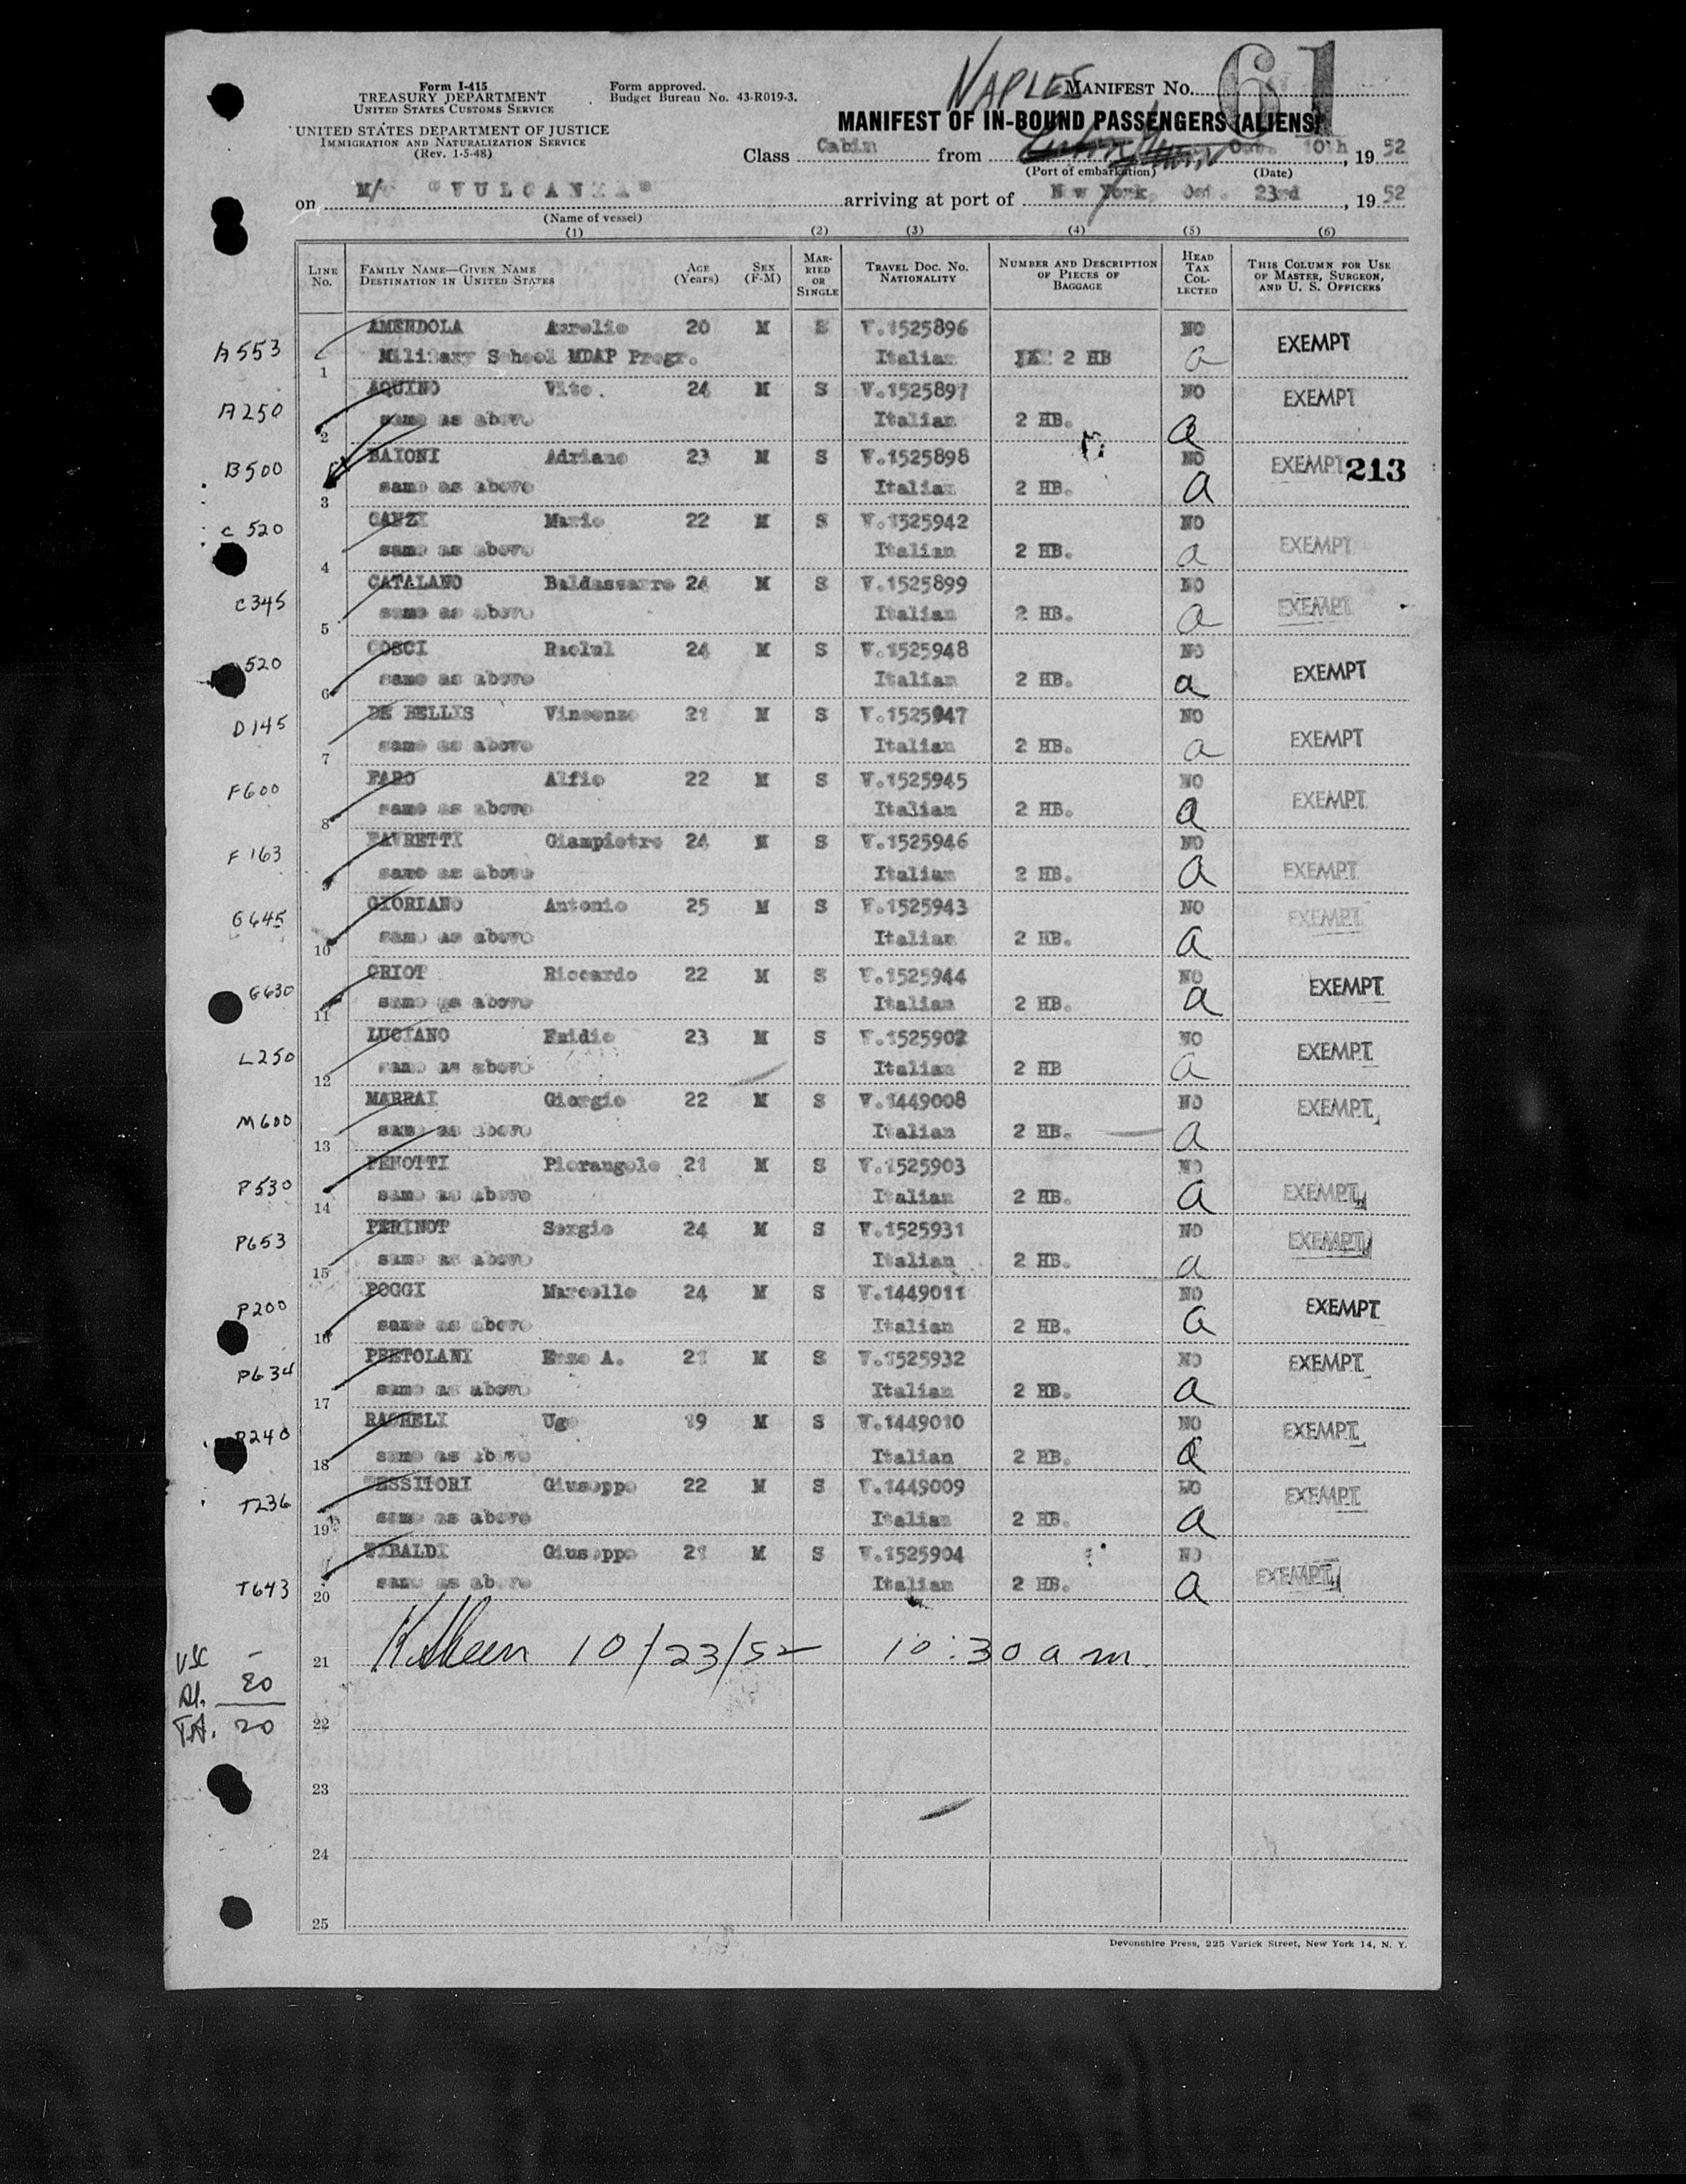 Form I-415
TREASURY DEPARTMENT
UNITED STATES CUSTOMS SERVICE
UNITED STATES DEPARTMENT OF JUSTICE
IMMIGRATION AND NATURALIZATION SERVICE
(Rev. 1-5-48)
Form approved.
Budget Bureau No. 43-R019-3.
NAPLES MANIFEST No. 61
MANIFEST OF IN-BOUND PASSENGERS (ALIENS)
Class Cabin from Oct. 10th, 19 52
(Port of embarkation) (Date)
on M/v "VULCANIA" arriving at port of New York, Oct. 23rd, 19 52
(Name of vessel)
(1) (2) (3) (4) (5) (6)
LINE No. FAMILY NAME—GIVEN NAME DESTINATION IN UNITED STATES AGE (Years) SEX (F-M) MARRIED OR SINGLE TRAVEL DOC. NO. NATIONALITY NUMBER AND DESCRIPTION OF PIECES OF BAGGAGE HEAD TAX COLLECTED THIS COLUMN FOR USE OF MASTER, SURGEON, AND U. S. OFFICERS
AMENDOLA Aurelio 20 M S V.1525896 NO EXEMPT
A553 1 Military School MDAP Progr. Italian 2 HB a
AQUINO Vito. 24 M S V.1525897 NO EXEMPT
A250 2 same as above Italian 2 HB. a
BAIONI Adriano 23 M S V.1525898 NO EXEMPT 213
B500 3 same as above Italian 2 HB. a
CANZI Mario 22 M S V.1525942 NO
C 520 4 same as above Italian 2 HB. a EXEMPT
CATALANO Baldassarre 24 M S V.1525899 NO
C345 5 same as above Italian 2 HB. a EXEMPT
COSCI Raolul 24 M S V.1525948 NO
520 6 same as above Italian 2 HB. a EXEMPT
DE BELLIS Vincenzo 21 M S V.1525947 NO
D145 7 same as above Italian 2 HB. a EXEMPT
FARO Alfio 22 M S V.1525945 NO
F600 8 same as above Italian 2 HB. a EXEMPT
FAVRETTI Giampietro 24 M S V.1525946 NO
F 163 9 same as above Italian 2 HB. a EXEMPT
GIORDANO Antonio 25 M S V.1525943 NO
G645 10 same as above Italian 2 HB. a EXEMPT
GRIOT Riccardo 22 M S V.1525944 NO
G630 11 same as above Italian 2 HB. a EXEMPT
LUCIANO Emidio 23 M S V.1525902 NO
L250 12 same as above Italian 2 HB a EXEMPT
MARRAI Giorgio 22 M S V.1449008 NO
M600 13 same as above Italian 2 HB. a EXEMPT
PENOTTI Pierangelo 21 M S V.1525903 NO
P530 14 same as above Italian 2 HB. a EXEMPT
PERINOT Sergio 24 M S V.1525931 NO
P653 15 same as above Italian 2 HB. a EXEMPT
POGGI Marcello 24 M S V.1449011 NO
P200 16 same as above Italian 2 HB. a EXEMPT
PRETOLANI Enzo A. 21 M S V.1525932 NO
P634 17 same as above Italian 2 HB. a EXEMPT
RACHELI Ugo 19 M S V.1449010 NO
R240 18 same as above Italian 2 HB. a EXEMPT
TESSITORI Giuseppe 22 M S V.1449009 NO
T236 19 same as above Italian 2 HB. a EXEMPT
TIBALDI Giuseppe 21 M S V.1525904 NO
T643 20 same as above Italian 2 HB. a EXEMPT
21 10/23/52 10:30 am.
USC -
Al. 20
TA. 20
22
23
24
25
Devonshire Press, 225 Varick Street, New York 14, N. Y.